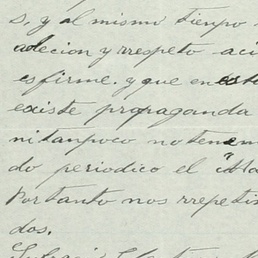 s, y al mismo tiempo
adecion y rrespeto aci
es firme. y que en este
existe propaganda
ni tanpoco no tenem
do periodico el "Ma
Por tanto nos rrepeti
dos.